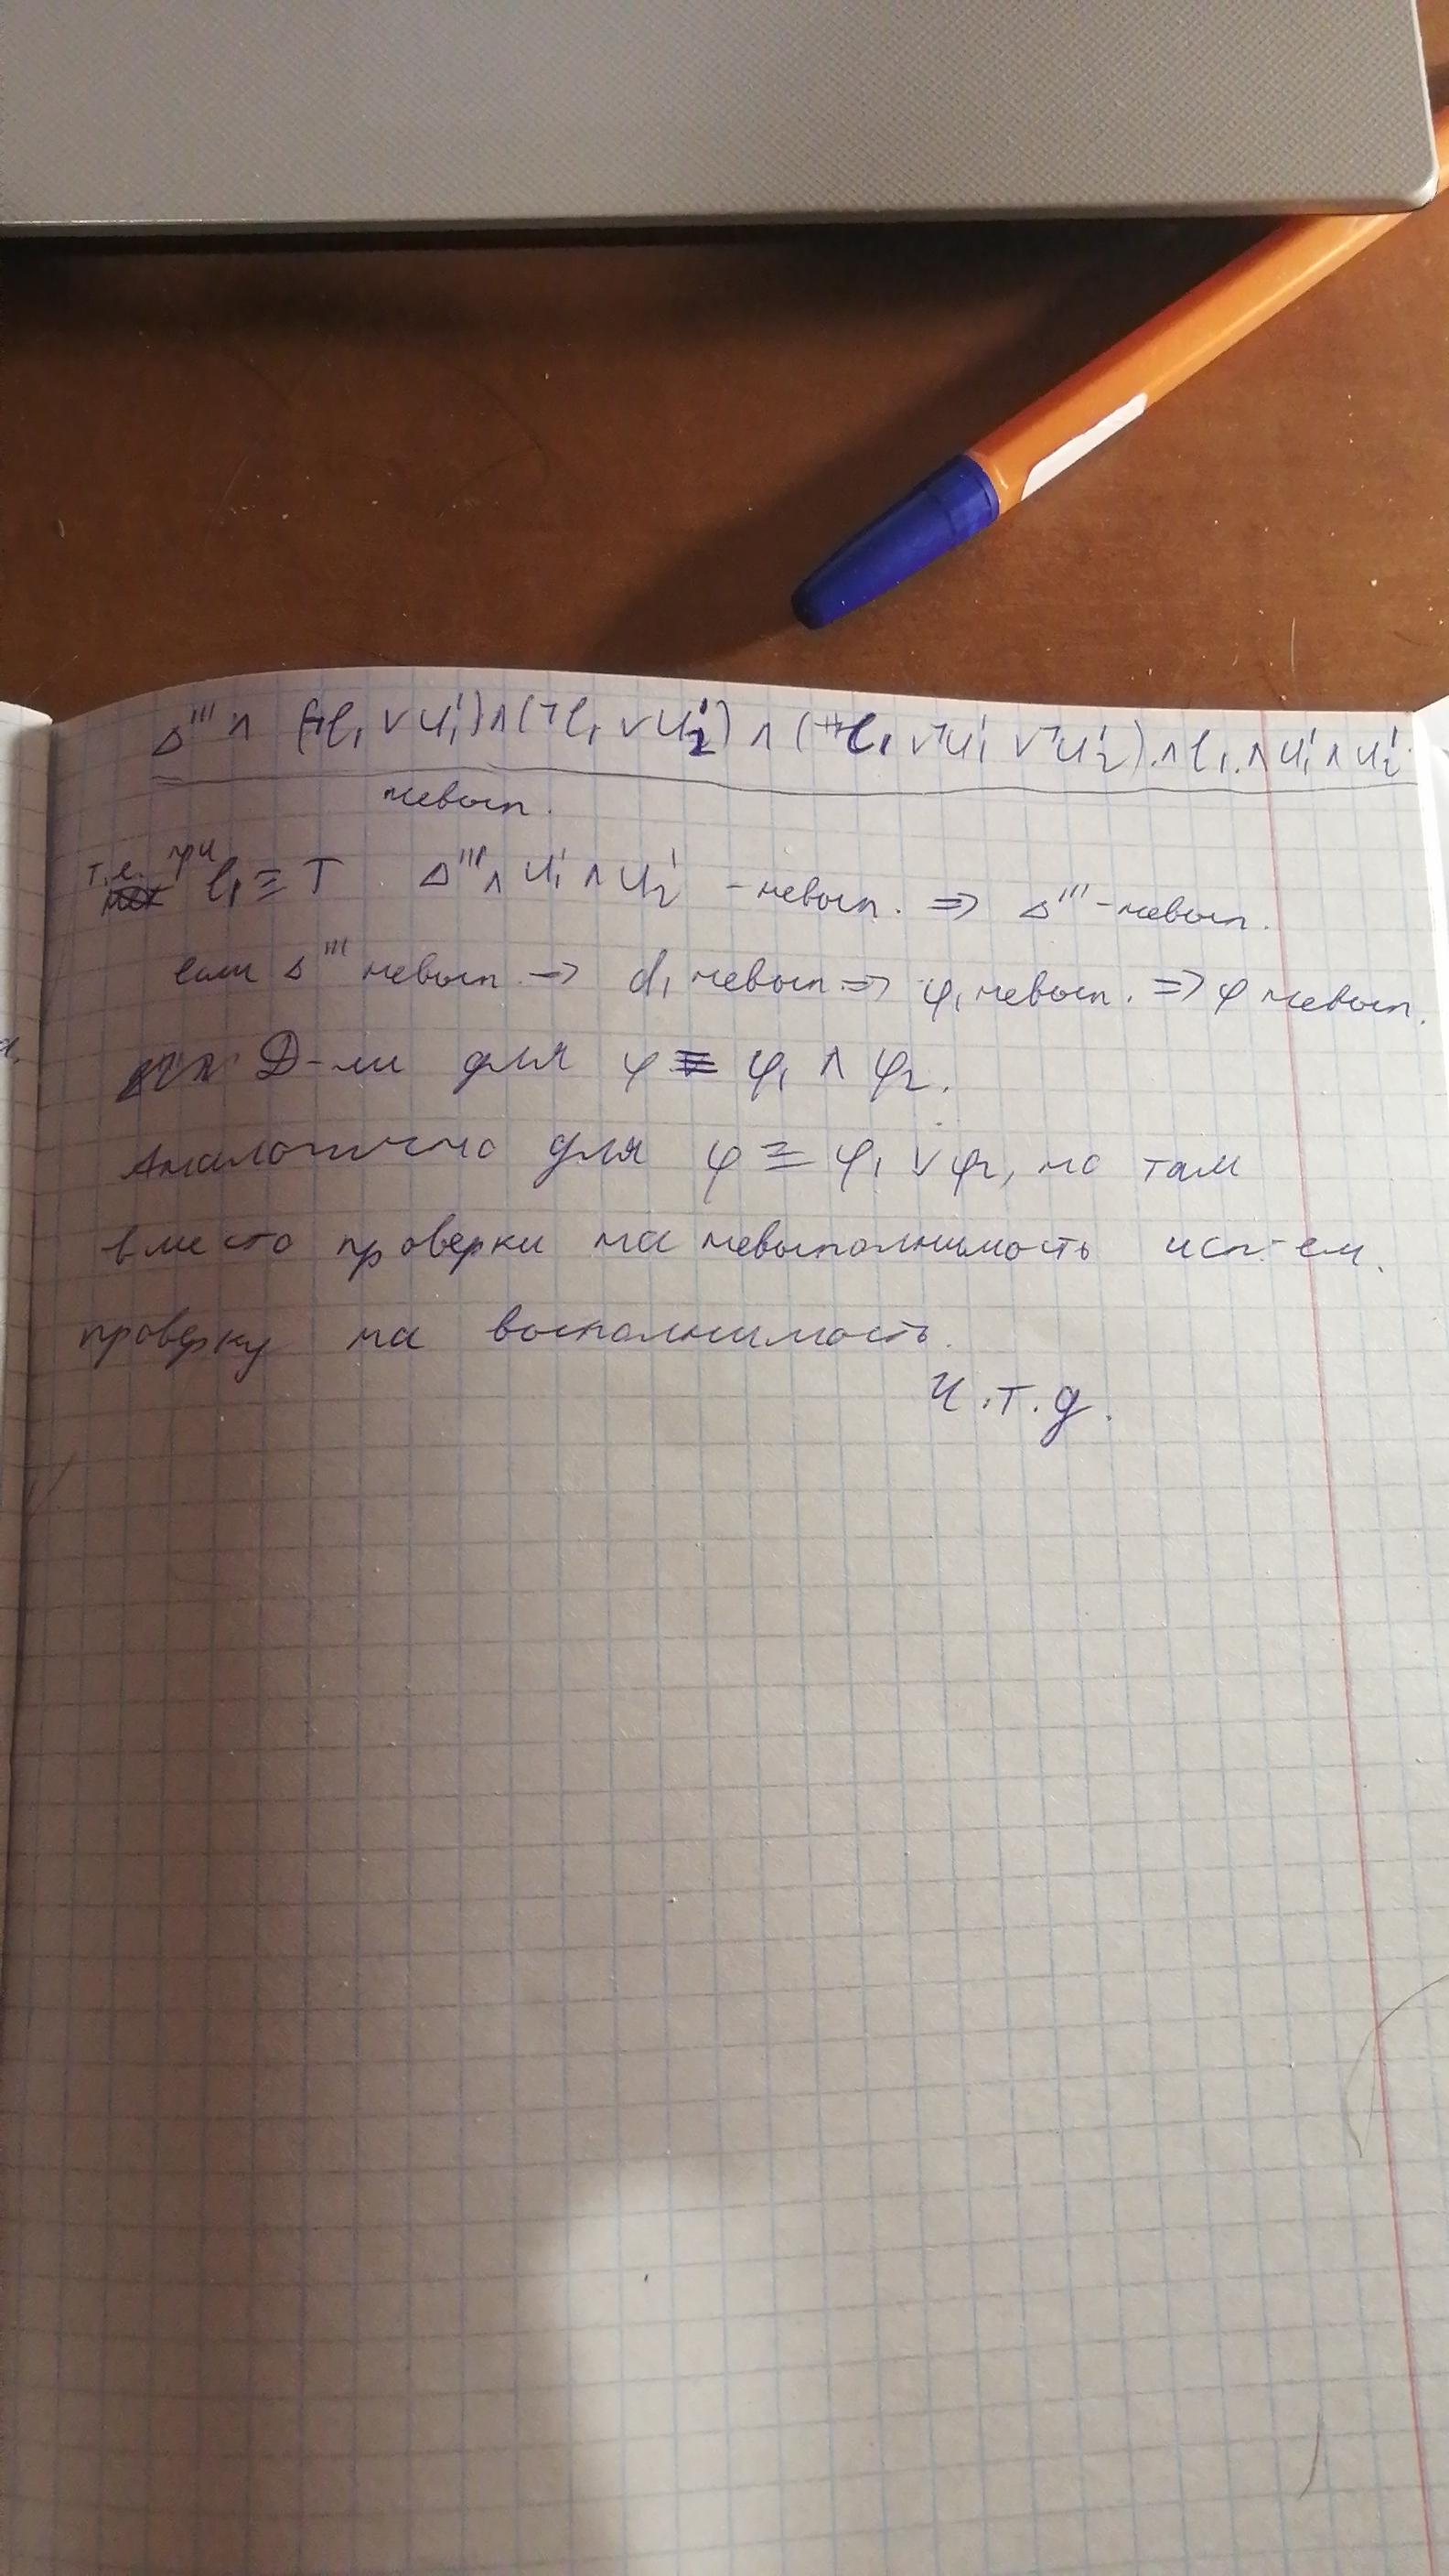 Δ''' ∧ (¬l₁ ∨ u₁¹) ∧ (¬l₁ ∨ u₂¹) ∧ (l₁ ∨ ¬u₁¹ ∨ ¬u₂¹) ∧ l₁ ∧ u₁¹ ∧ u₂¹
невып.
т.е. при l₁ ≡ T Δ''' ∧ u₁¹ ∧ u₂¹ - невып. ⇒ Δ''' - невып.
если Δ''' невып. → d₁ невып. ⇒ φ₁ невып. ⇒ φ невып.
Д-ли для φ ≡ φ₁ ∧ φ₂.
Аналогично для φ ≡ φ₁ ∨ φ₂, но там
вместо проверки на невыполнимость исп-ем.
проверку на выполнимость.
Ч.т.д.